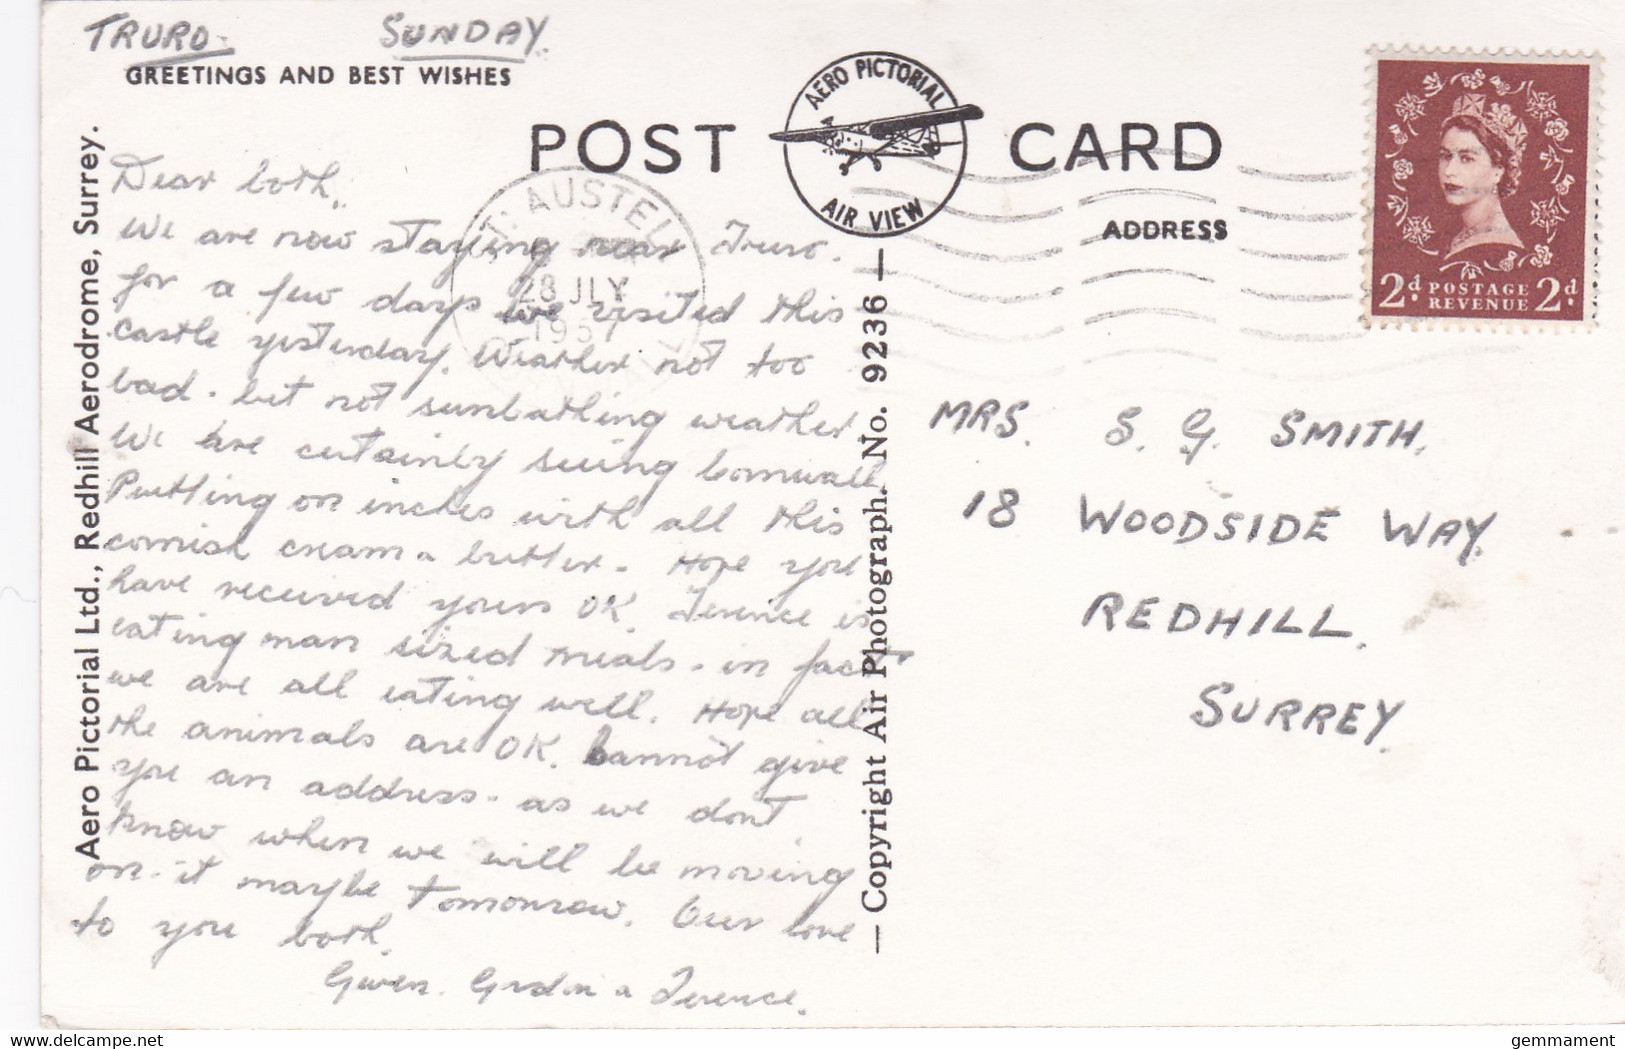 TRURO. SUNDAY.
GREETINGS AND BEST WISHES
POST CARD
AERO PICTORIAL
AIR VIEW
ADDRESS
2d POSTAGE REVENUE 2d
ST AUSTELL
28 JLY
1957
CORNWALL
Dear both,
We are now staying near Truro.
for a few days we visited this
castle yesterday. Weather not too
bad. but not sunbathing weather
We are certainly seeing Cornwall.
Putting on inches with all this
cornish cream & butter. Hope you
have received yours OK. Terence is
eating man sized meals. in fact
we are all eating well. Hope all
the animals are OK. Cannot give
you an address. as we dont
know when we will be moving
on. it maybe tomorrow. Our love
to you both.
Gwen. Gordon & Terence.
MRS. S. G. SMITH.
18 WOODSIDE WAY.
REDHILL.
SURREY.
Aero Pictorial Ltd., Redhill Aerodrome, Surrey.
— Copyright Air Photograph. No. 9236 —
gemmament